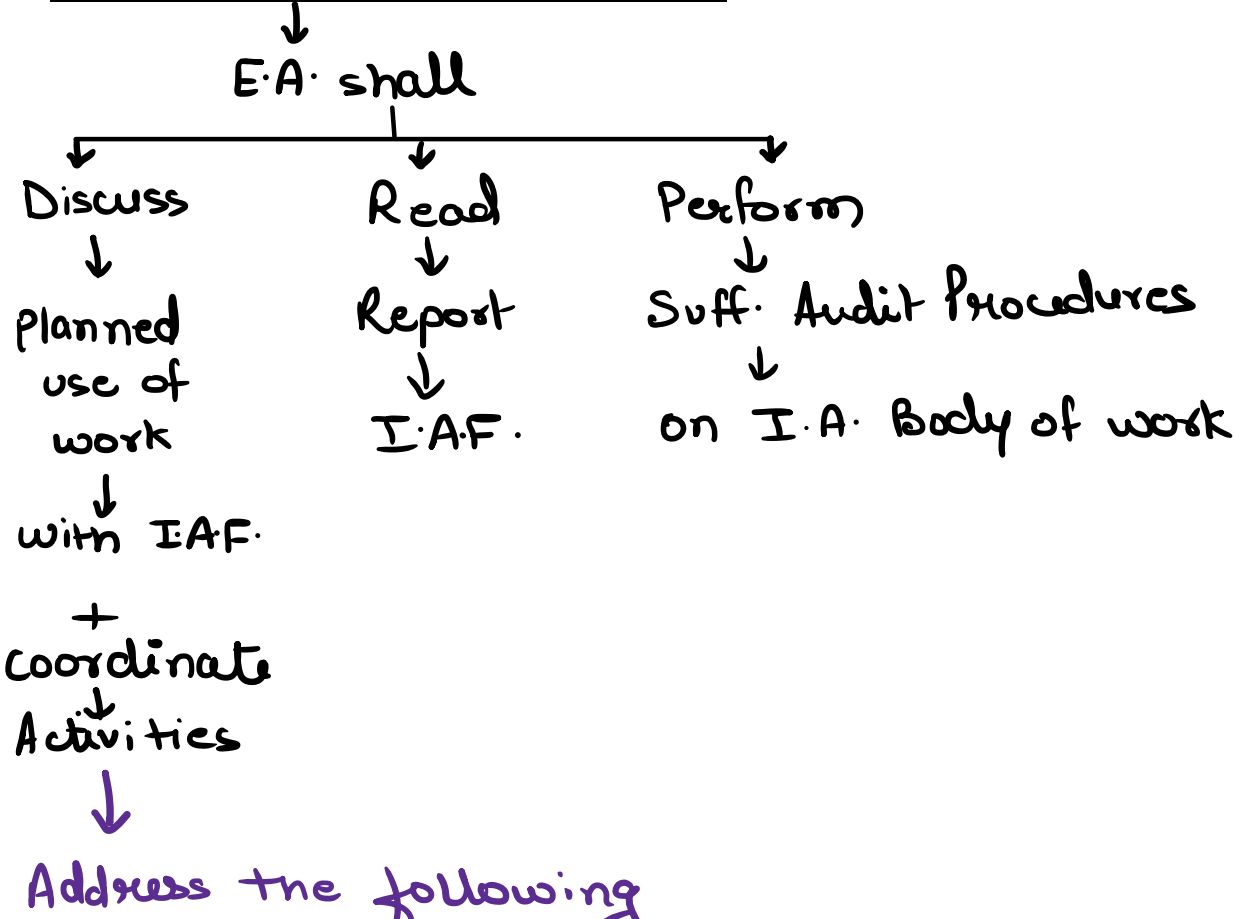 E.A. shall
Discuss
Planned
use of
work
with I.A.F.
+
coordinate
Activities
Address the following
Read
Report
I.A.F.
Perform
Suff. Audit Procedures
on I.A. Body of work